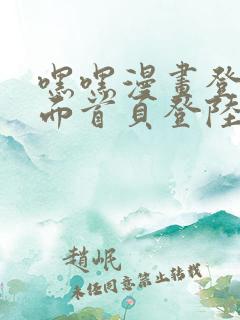 嘿嘿漫畫登
面首頁登陸
趙岷
未經同意禁止轉載